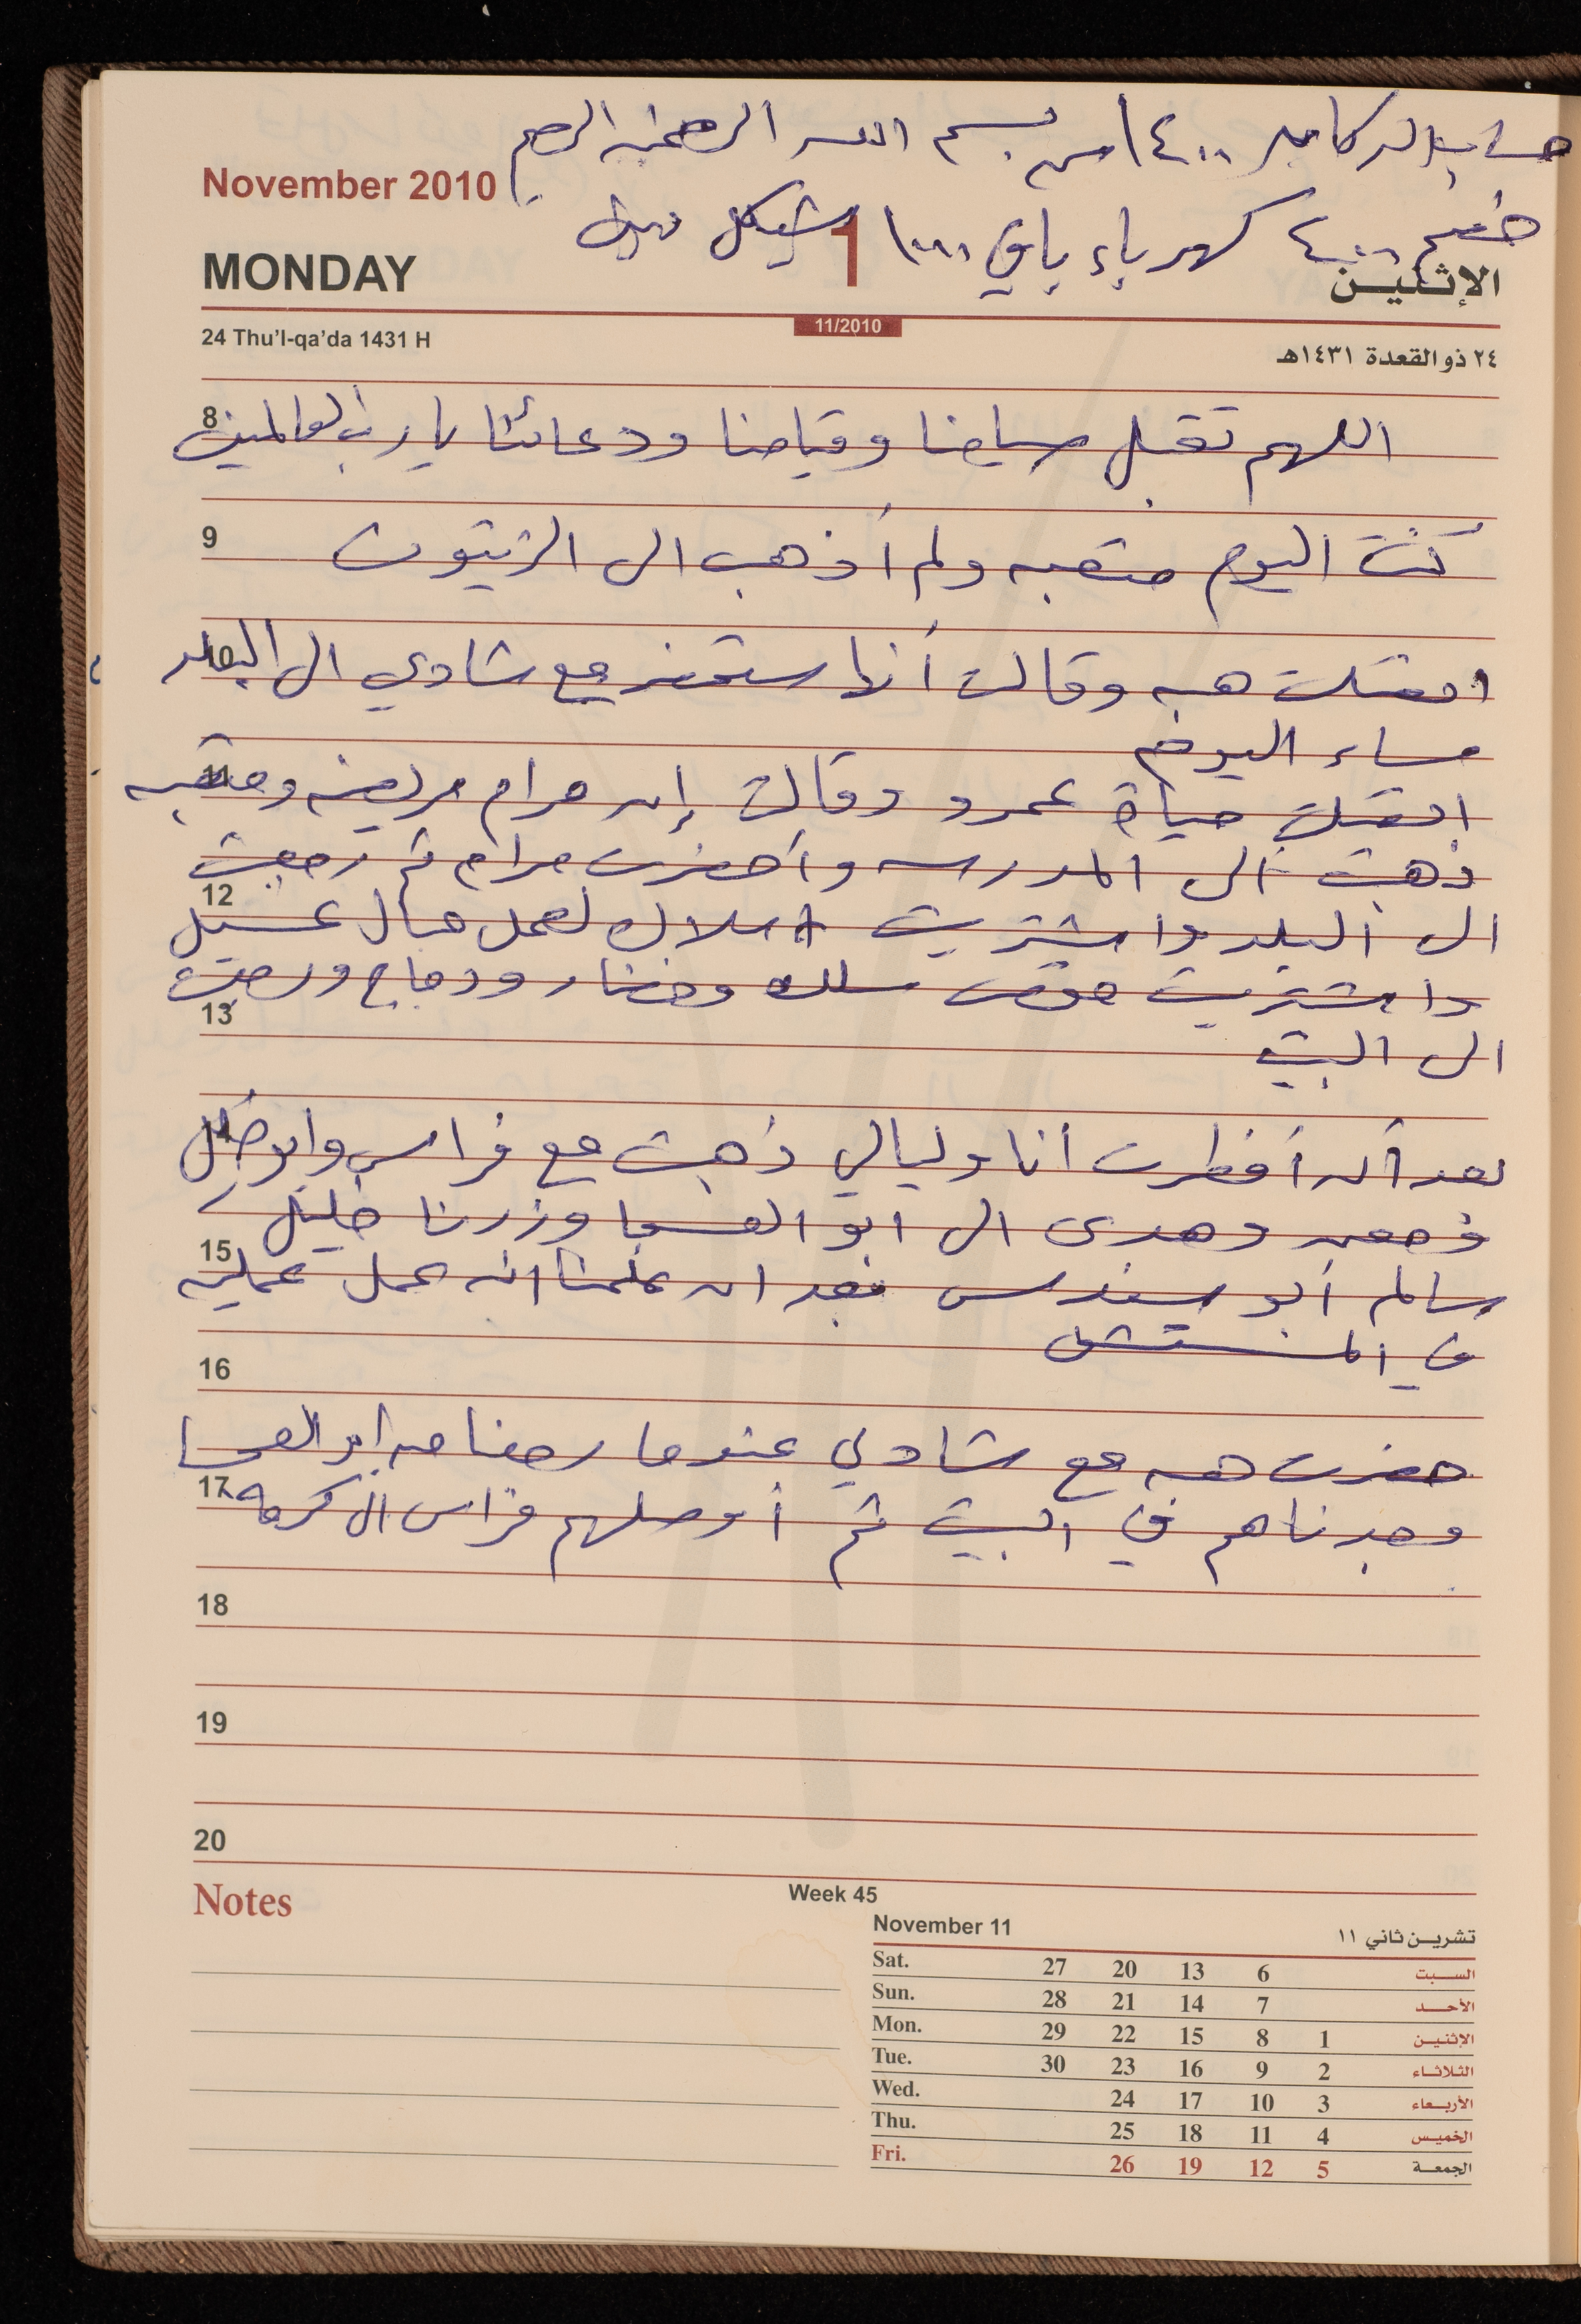 حساب الدكان ١٤٠٠ من بسم الله الرحمن الرحيم
خصم ٤٠٠ كهرباء باقي ١٠٠٠ شيكل
November 2010
MONDAY 1 الإثنين
11/2010
24 Thu'l-qa'da 1431 H ٢٤ ذو القعدة ١٤٣١هـ
8 اللهم تقبل صيامنا وقيامنا ودعائنا يا رب العالمين
9 كنت اليوم متعبه ولم أذهب الى الزيتون
10 اتصلت هبه وقالت أنها ستحضر مع شادي الى البلد
مساء اليوم
11 اتصلت حياة عمرو وقالت إن مرام مريضه ومتعبه
ذهبت الى المدرسه وأحضرت مرام ثم رجعت
12 الى البلد واشتريت اسلاك لعمل حبال غسيل
واشتريت سلك وخضار ودجاج ورجعت
13 الى البيت
14 بعد أن أفطرت أنا وليالي ذهبت مع فراس وابو خليل
وهدى الى ابو العسجا وزرنا خليل
15 سالم أبو سندس بعد ان علمنا انه عمل عمليه
في المستشفى
16
حضرت هبه مع شادي عندما رجعنا من ابو العسجا
17 وجدناهم في البيت ثم أوصلهم فراس الى كرمه
18
19
20
Notes
Week 45
November 11 تشرين ثاني ١١
Sat. 27 20 13 6 السبت
Sun. 28 21 14 7 الأحد
Mon. 29 22 15 8 1 الإثنين
Tue. 30 23 16 9 2 الثلاثاء
Wed. 24 17 10 3 الأربعاء
Thu. 25 18 11 4 الخميس
Fri. 26 19 12 5 الجمعة